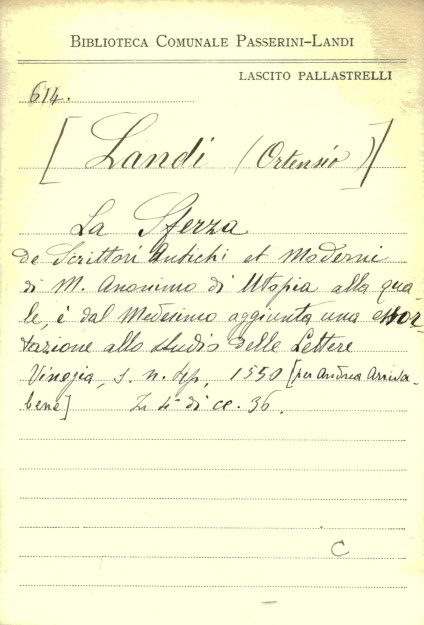 BIBLIOTECA COMUNALE PASSERINI-LANDI
LASCITO PALLASTRELLI
614.
[Landi (Ortensio)]
La Sferza
de Scrittori Antichi et Moderni
di M. Anonimo di Utopia alla qua
le, è dal Medesimo aggiunta una essor
tazione allo studio delle Lettere
Vinegia, s. n. tip, 1550 [per Andrea Arriva-
bene] In 4° di cc. 36.
C